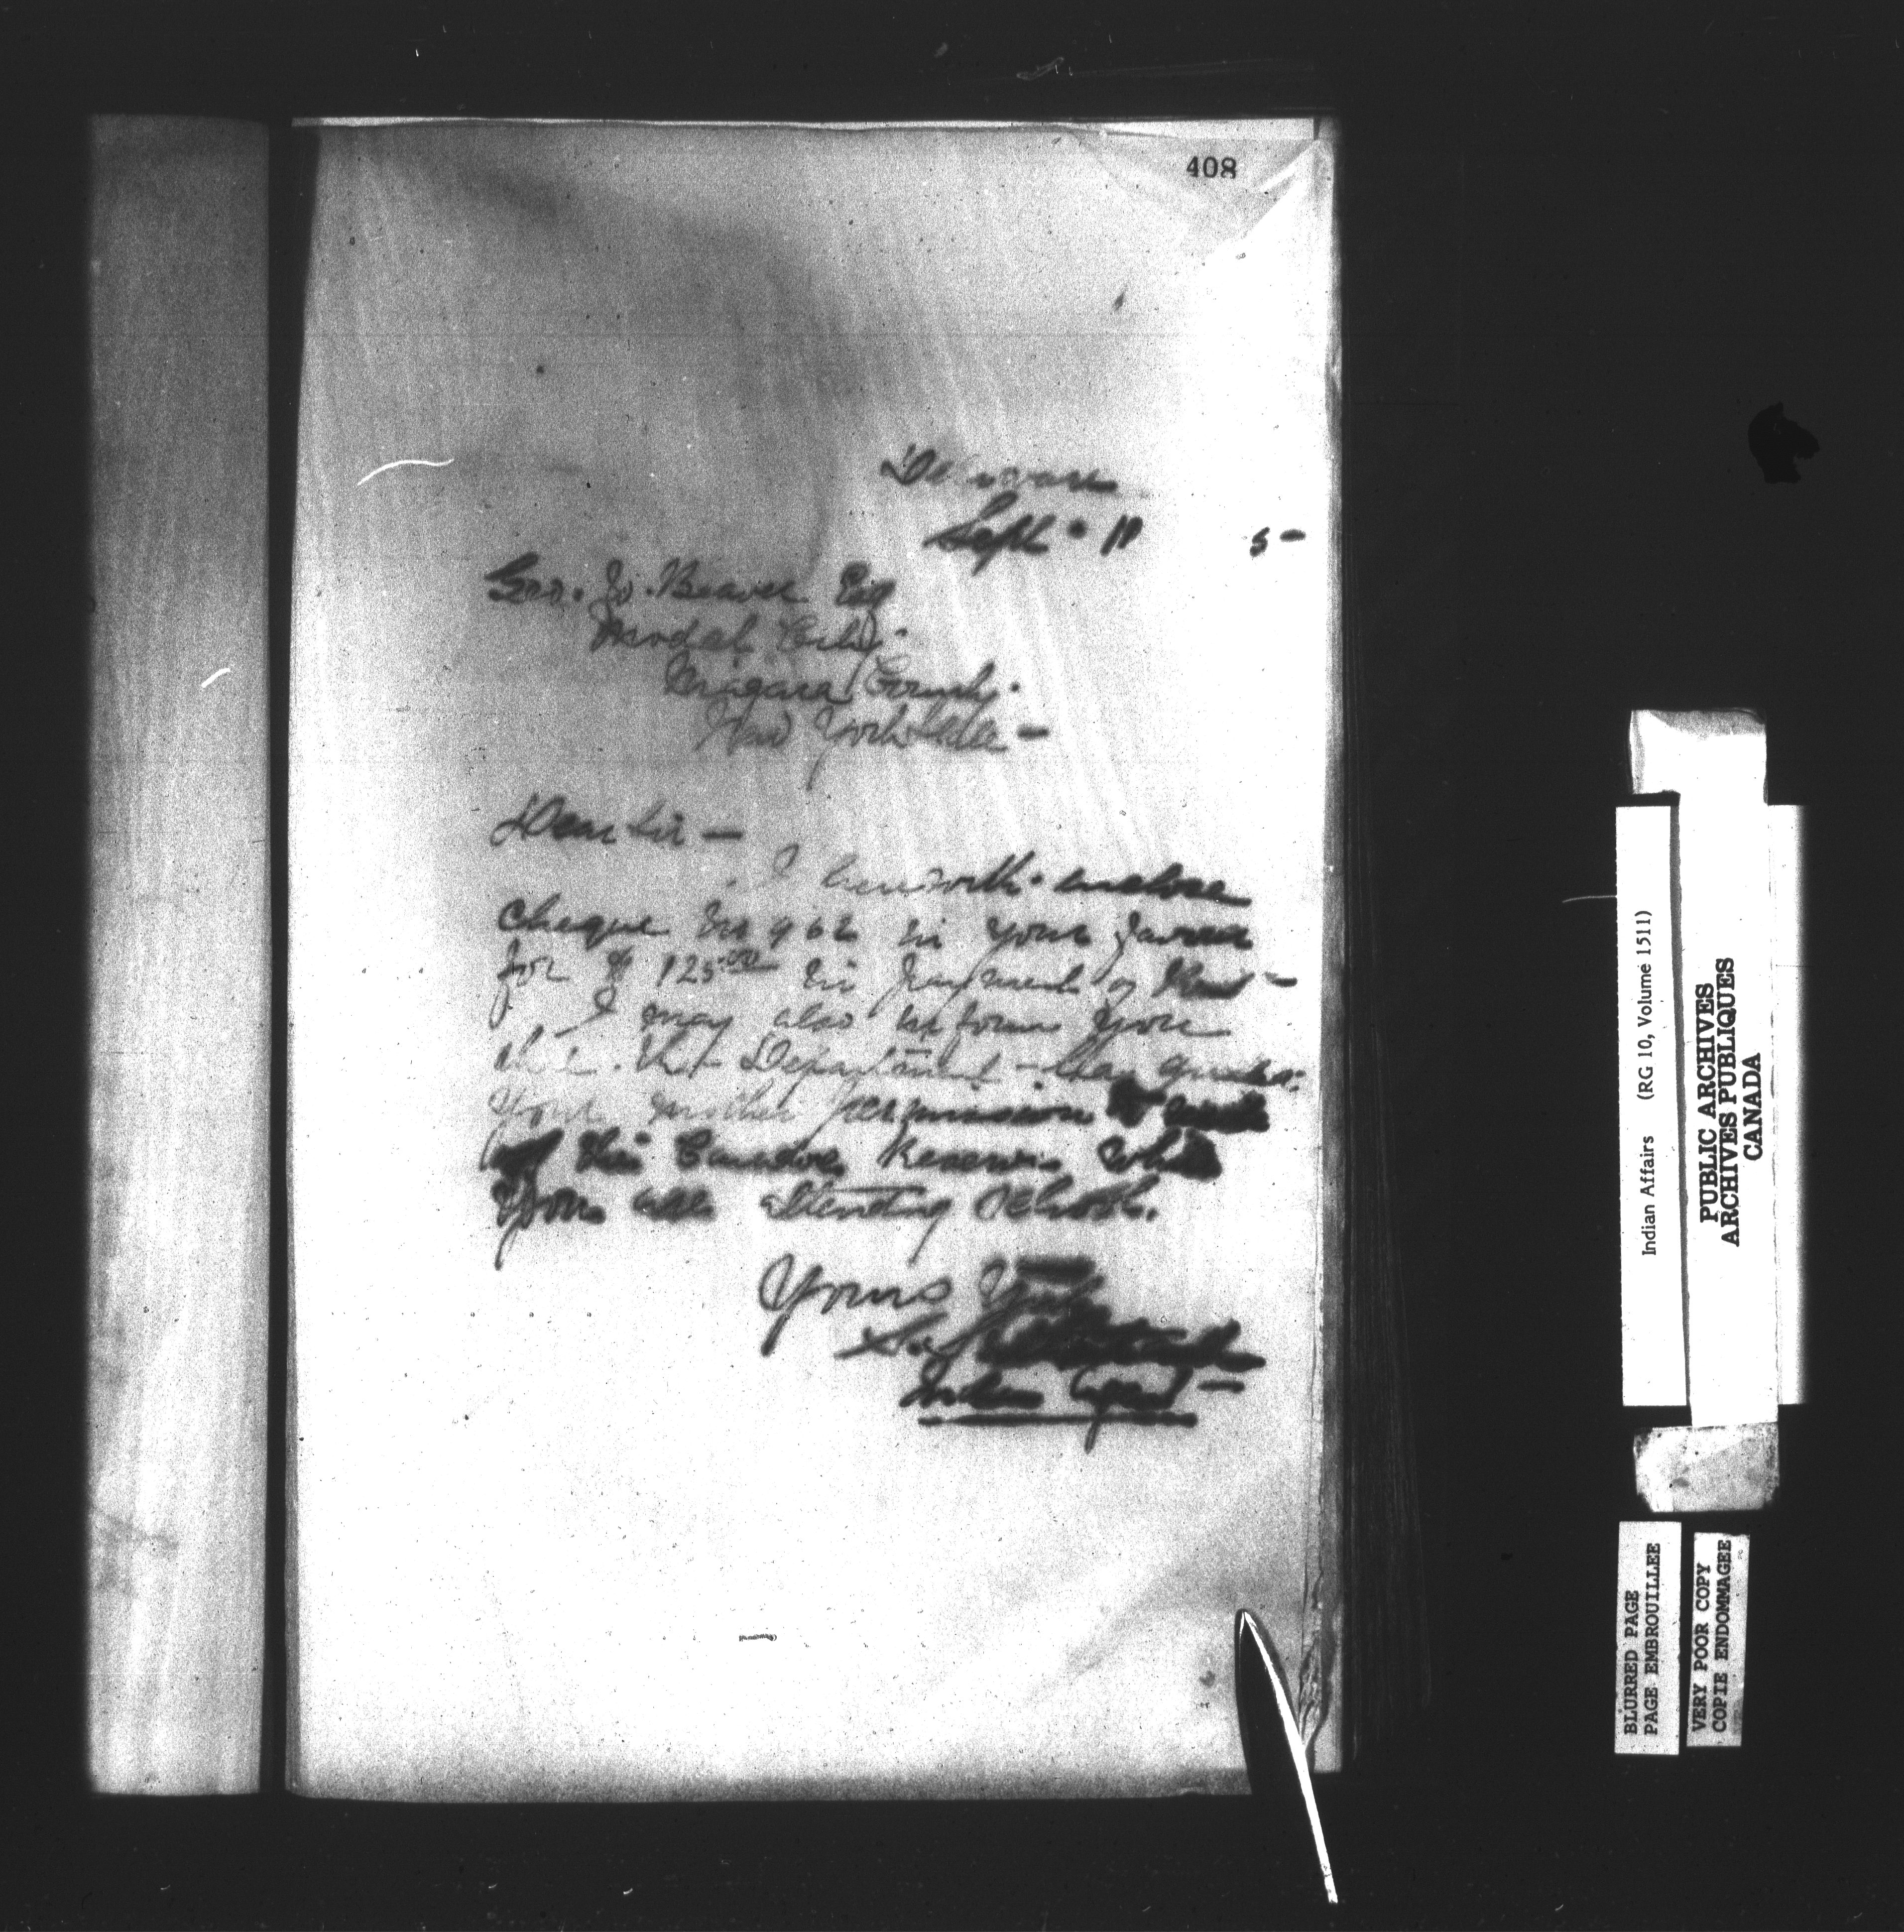 408
Delaware
Sept. 11 5-
Geo. W. Beaver Esq
Model City.
Niagara County.
New York State -
Dear Sir -
I herewith enclose
Cheque No 962 in your favour
for $ 125.00 in payment of
I may also inform you
that the Department has
your mother permission to
the Caradoc Reserve while
you are attending School.
Yours
Indian Agent -
Indian Affairs (RG 10, Volume 1511)
PUBLIC ARCHIVES
ARCHIVES PUBLIQUES
CANADA
BLURRED PAGE
PAGE EMBROUILLEE
VERY POOR COPY
COPIE ENDOMMAGEE